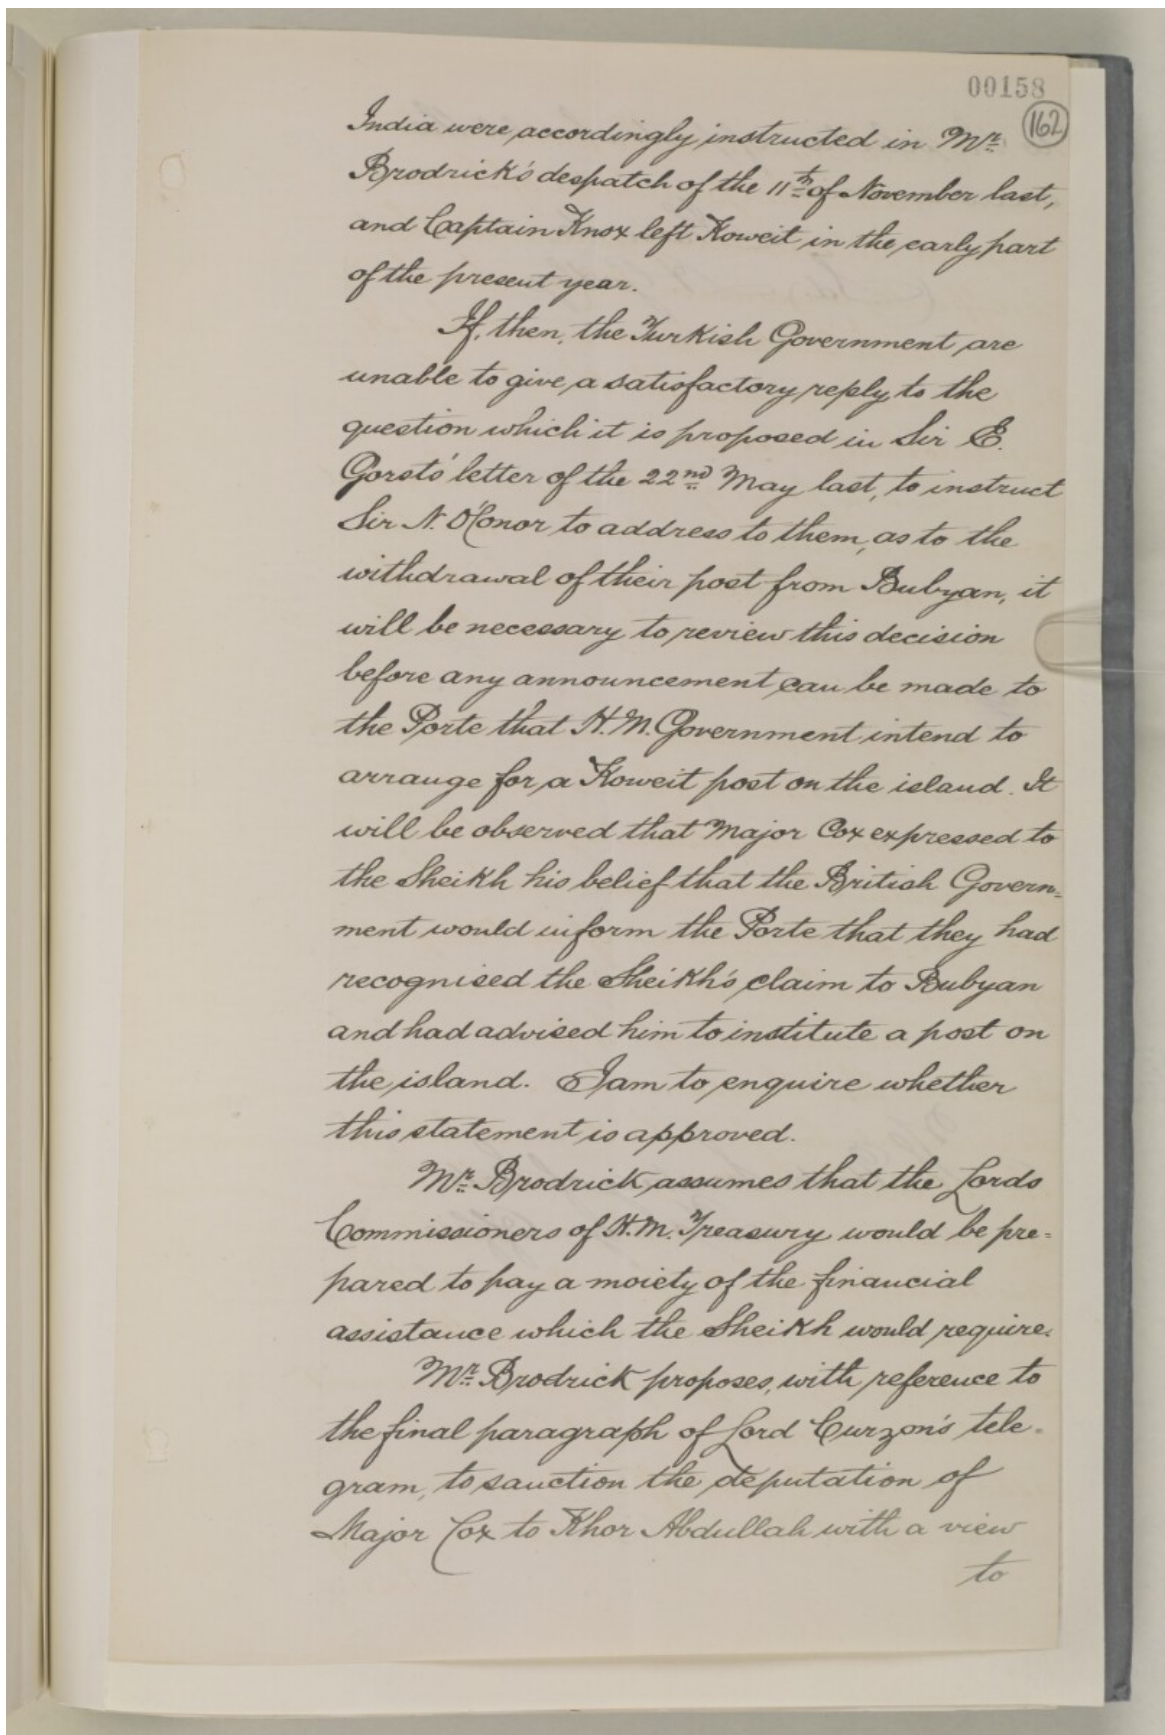 00158
162
India were accordingly instructed in Mr.
Brodrick's despatch of the 11th of November last,
and Captain Knox left Koweit in the early part
of the present year.
If, then, the Turkish Government are
unable to give a satisfactory reply to the
question which it is proposed in Sir E.
Gorst's letter of the 22nd May last, to instruct
Sir N. O'Conor to address to them, as to the
withdrawal of their post from Bubyan, it
will be necessary to review this decision
before any announcement can be made to
the Porte that H.M. Government intend to
arrange for a Koweit post on the island. It
will be observed that Major Cox expressed to
the Sheikh his belief that the British Govern-
ment would inform the Porte that they had
recognised the Sheikh's claim to Bubyan
and had advised him to institute a post on
the island. I am to enquire whether
this statement is approved.
Mr. Brodrick assumes that the Lords
Commissioners of H.M. Treasury would be pre-
pared to pay a moiety of the financial
assistance which the Sheikh would require.
Mr. Brodrick proposes, with reference to
the final paragraph of Lord Curzon's tele-
gram, to sanction the deputation of
Major Cox to Khor Abdullah with a view
to